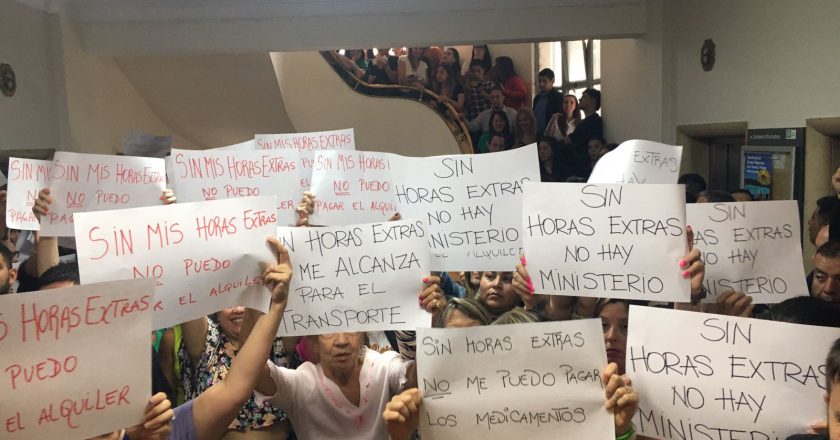 SIN MIS HORAS EXTRAS
NO PUEDO
PAGAR EL ALQUILER
SIN MIS HORAS EXTRAS
NO PUEDO
SIN MIS HORAS EXTRAS
SIN MIS HORAS
NO PUEDO
PAGAR EL ALQUILER
SIN
HORAS EXTRAS
NO HAY
MINISTERIO
EXTRAS
SIN MIS HORAS EXTRAS
NO PUEDO
EL ALQUILER
SIN HORAS EXTRAS
ME ALCANZA
PARA EL
TRANSPORTE
SIN
HORAS EXTRAS
NO HAY
MINISTERIO
SIN
HORAS EXTRAS
NO HAY
MINISTERIO
HORAS EXTRAS
PUEDO
EL ALQUILER
SIN HORAS EXTRAS
NO ME PUEDO PAGAR
LOS MEDICAMENTOS
SIN
HORAS EXTRAS
NO HAY
MINISTERIO